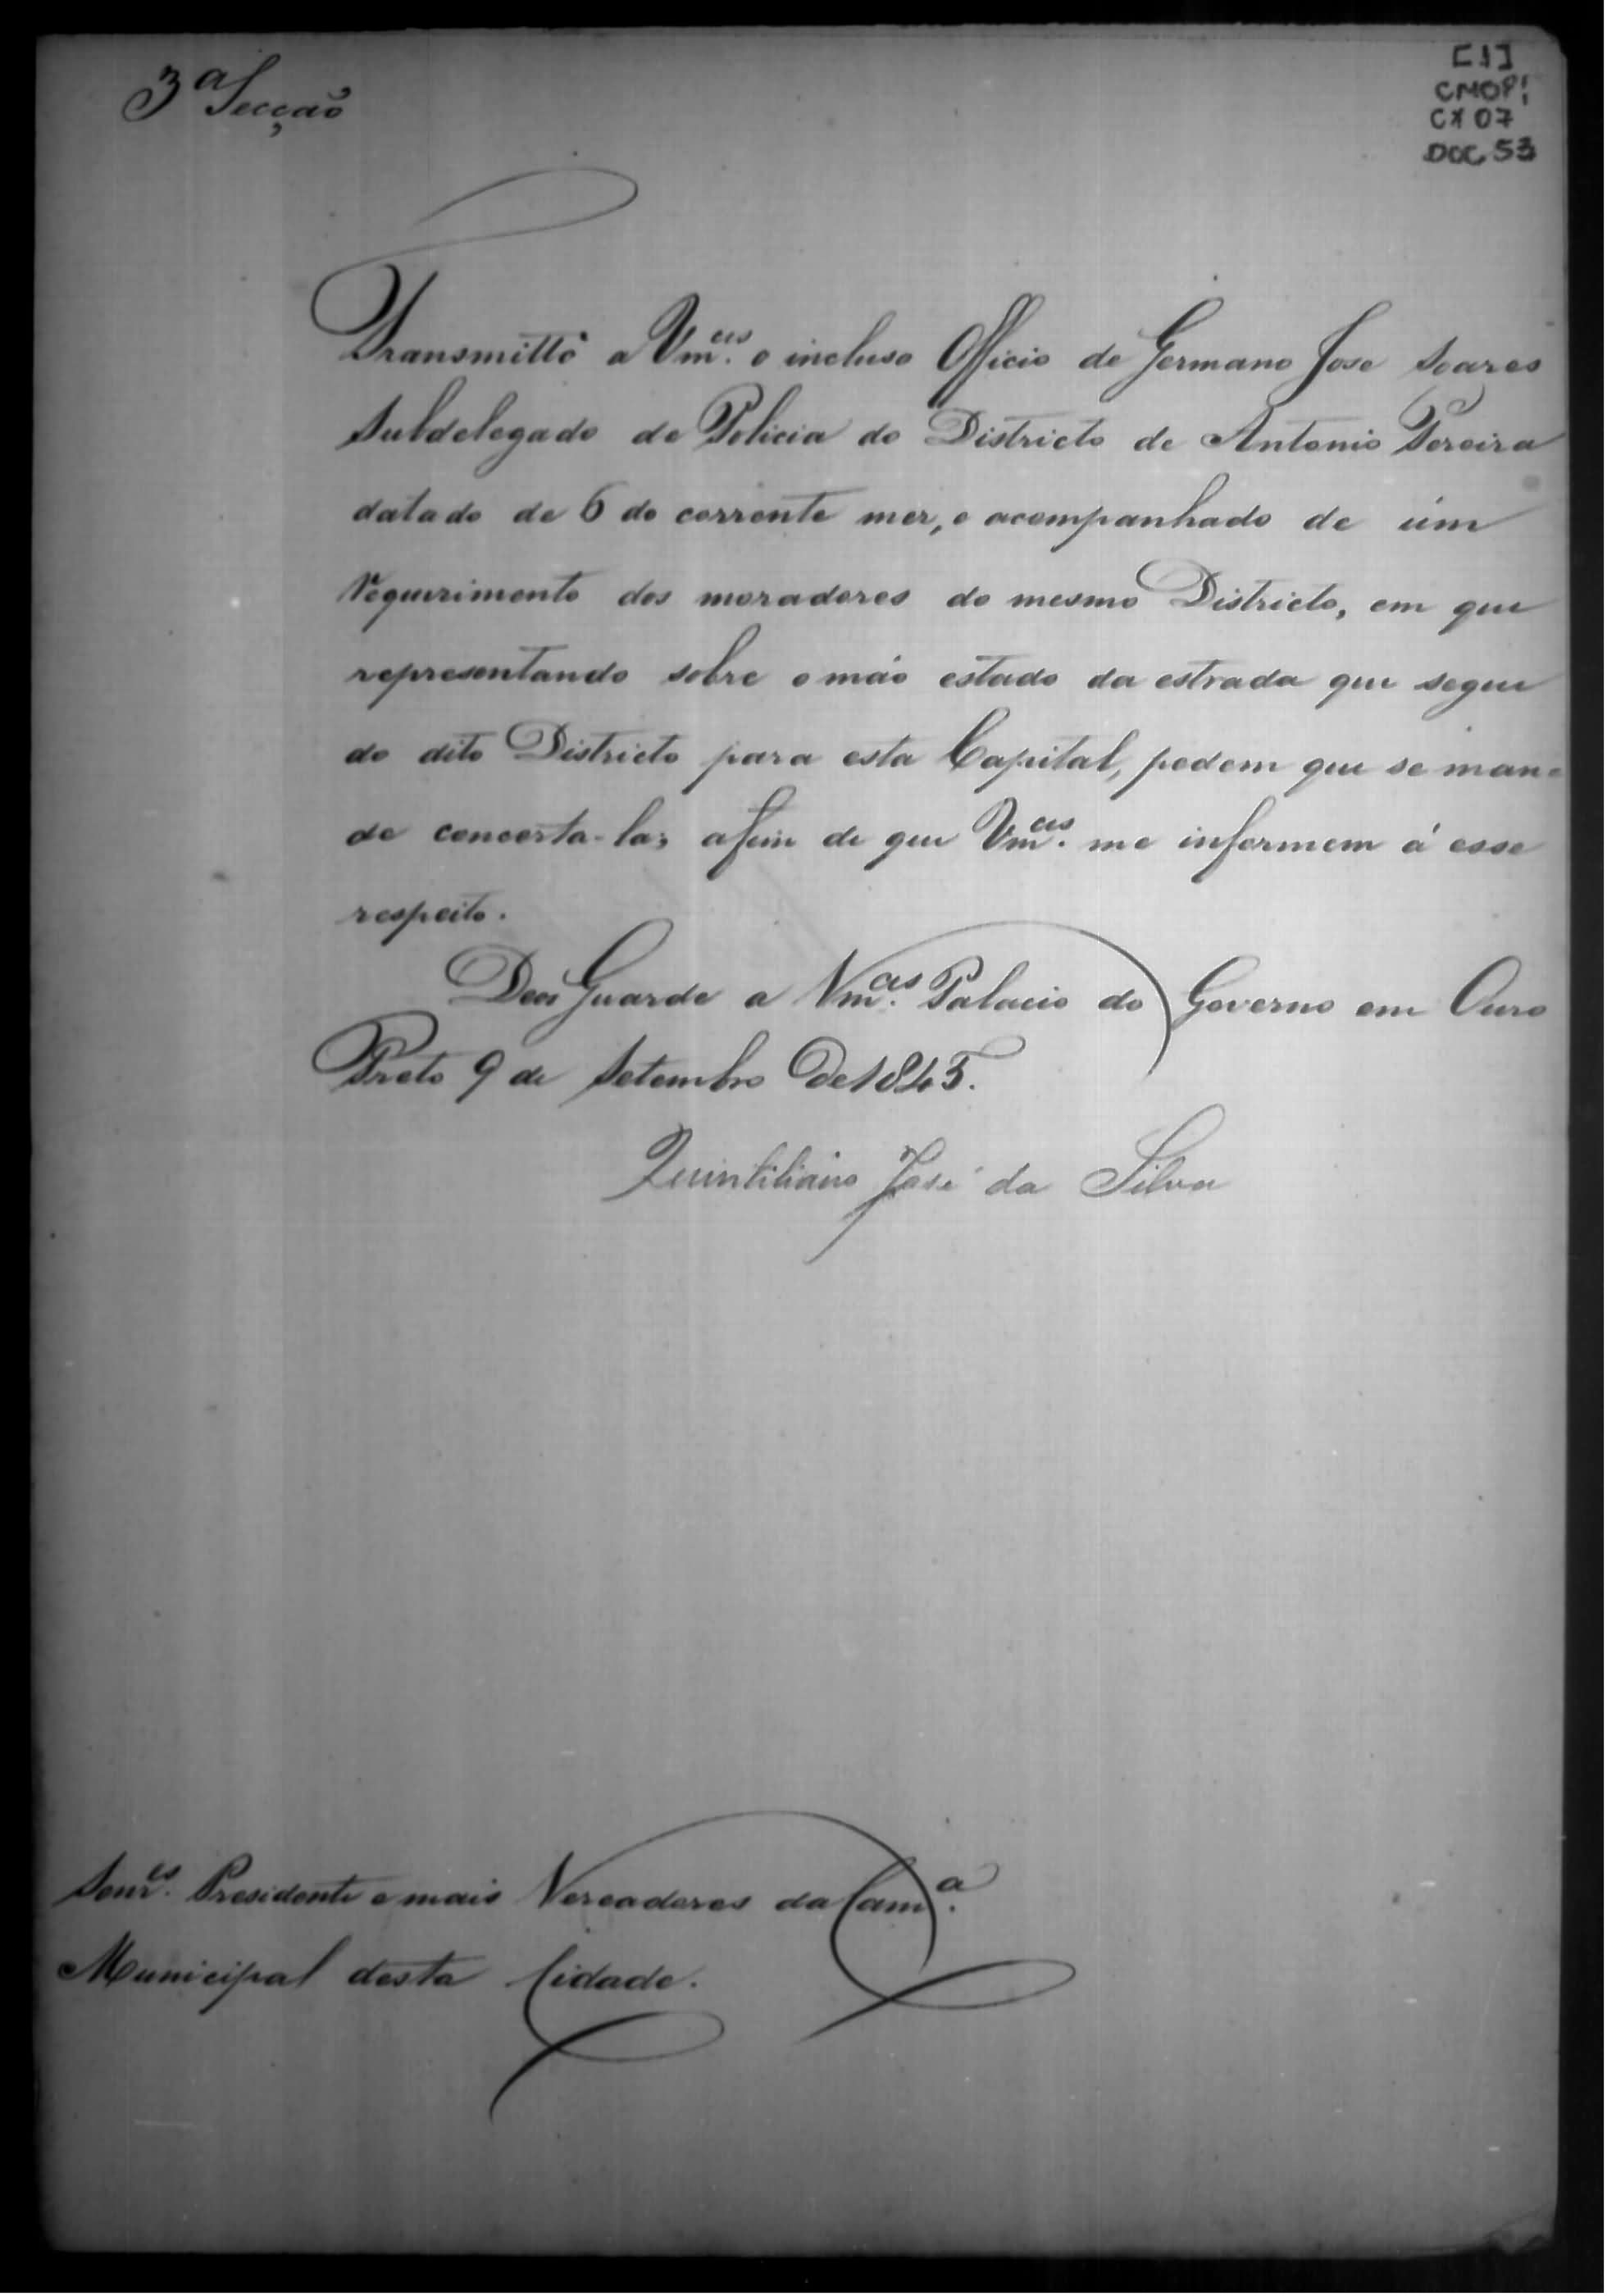 3ª Secção
[1]
CMOP
CX 07
DOC. 53
Transmitto a Vm.ces o incluso Officio de Germano Jose Soares
Subdelegado de Policia do Districto de Antonio Pereira
datado de 6 do corrente mez, e acompanhado de um
requerimento dos moradores do mesmo Districto, em que
representando sobre o máo estado da estrada que segue
do dito Districto para esta Capital, pedem que se man-
de concerta-la; afim de que Vm.ces me informem á esse
respeito.
Deos Guarde a Vm.ces Palacio do Governo em Ouro
Preto 9 de Setembro De 1845.
Quintiliano José da Silva
Senr.es Presidente e mais Vereadores da Cam.ª
Municipal desta Cidade.